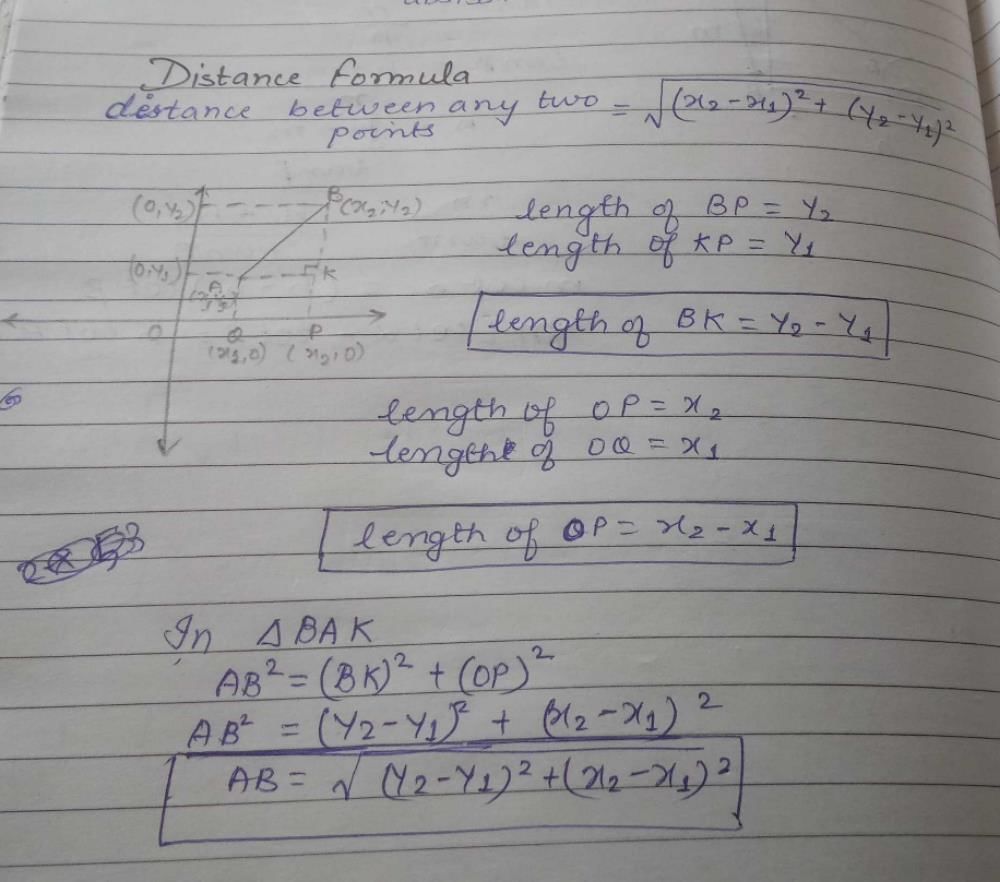 Distance formula
distance between any two points = √(x₂-x₁)²+(y₂-y₁)²
(0,y₂) B(x₂,y₂)
(0,y₁) A (x₁,y₁) K
O Q P
(x₁,0) (x₂,0)
length of BP = y₂
length of KP = y₁
length of BK = y₂ - y₁
length of OP = x₂
length of OQ = x₁
length of QP = x₂ - x₁
In Δ BAK
AB² = (BK)² + (OP)²
AB² = (y₂-y₁)² + (x₂-x₁)²
AB = √(y₂-y₁)²+(x₂-x₁)²